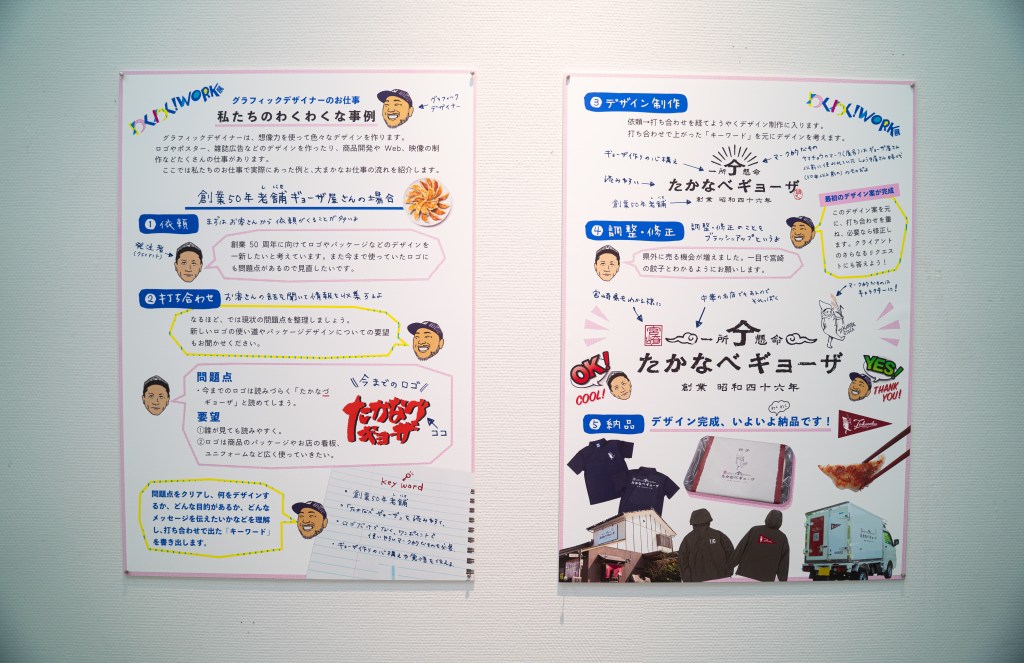 わくわく!WORK展
グラフィックデザイナーのお仕事
私たちのわくわくな事例
グラフィック
デザイナー
グラフィックデザイナーは、想像力を使って色々なデザインを作ります。
ロゴやポスター、雑誌広告などのデザインを作ったり、商品開発や Web、映像の制
作などたくさんの仕事があります。
ここでは私たちのお仕事で実際にあった例と、大まかなお仕事の流れを紹介します。
しにせ
創業50年老舗ギョーザ屋さんの場合
1 依頼
まずはお客さんから依頼がくることが多いよ
発注者
(クライアント)
創業 50 周年に向けてロゴやパッケージなどのデザインを
一新したいと考えています。また今まで使っていたロゴに
も問題点があるので見直したいです。
2 打ち合わせ
お客さんの話を聞いて情報を収集するよ
なるほど、では現状の問題点を整理しましょう。
新しいロゴの使い道やパッケージデザインについての要望
もお聞かせください。
問題点
・今までのロゴは読みづらく「たかなづ
ギョーザ」と読めてしまう。
要望
①誰が見ても読みやすく。
②ロゴは商品のパッケージやお店の看板、
ユニフォームなど広く使っていきたい。
今までのロゴ
たかなべ
ギョーザ
ココ
問題点をクリアし、何をデザインす
るか、どんな目的があるか、どんな
メッセージを伝えたいかなどを理解
し、打ち合わせで出た「キーワード」
を書き出します。
key word
・創業50年老舗
・「たかなべギョーザ」と読みやすく。
・ロゴだけでなく、ワンポイントで
使いやすいマーク的なものも必要
・ギョーザ作りの心構えや覚悟を伝える
3 デザイン制作
わくわく!WORK展
依頼→打ち合わせを経てようやくデザイン制作に入ります。
打ち合わせで上がった「キーワード」を元にデザインを考えます。
ギョーザ作りの心構え
マーク的なもの
一所 懸命
読みやすい
たかなべギョーザ
創業50年老舗
創業 昭和四十六年
最初のデザイン案が完成
このデザイン案を元
に、打ち合わせを重
ね、必要なら修正し
ます。クライアント
のさらなるリクエス
トにも答えよう!
4 調整・修正
調整・修正のことを
ブラッシュアップというよ
県外に売る機会が増えました。一目で宮崎
の餃子とわかるようにお願いします。
宮崎県とわかる様に
中華のお店でもあるので
それっぽく
マーク的なものは
キャラクターに!
宮崎
一所 懸命
たかなべギョーザ
創業 昭和四十六年
OK!
COOL!
YES!
THANK
YOU!
5 納品
デザイン完成、いよいよ納品です!
たかなべギョーザ
たかなべギョーザ